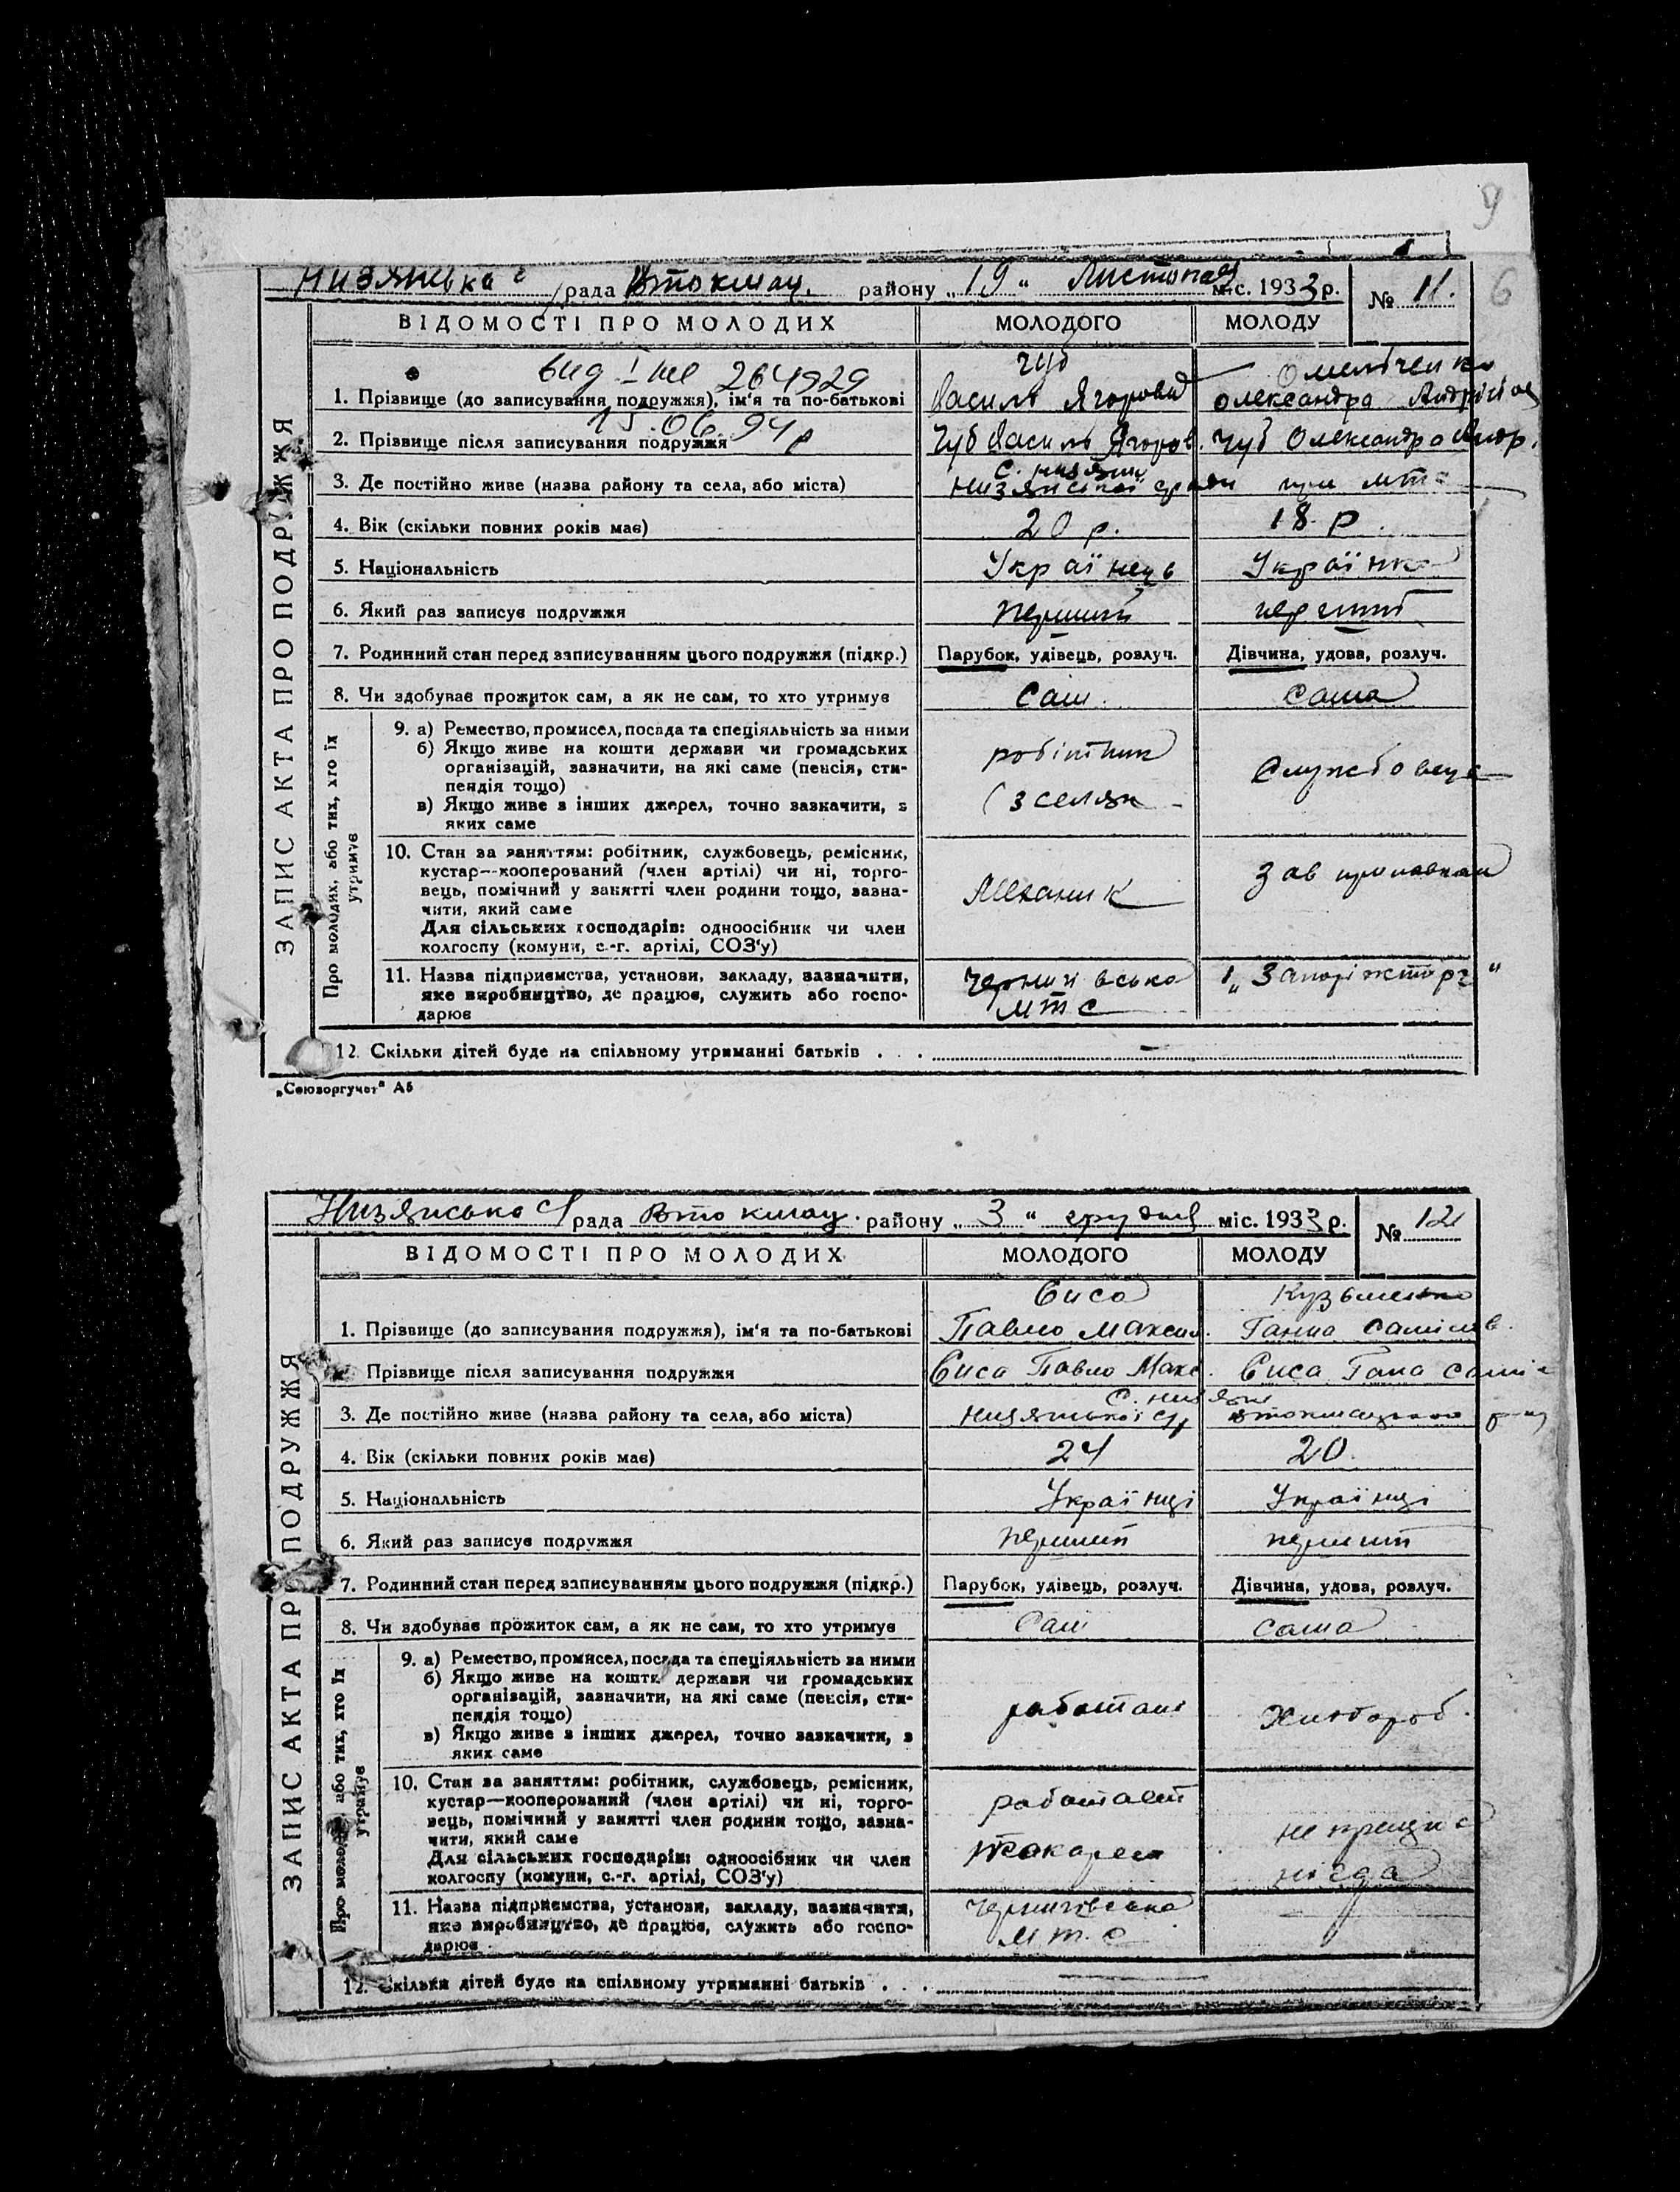 9
6
Низянська с/рада Втокмац. району „19“ Листопад міс. 1933 р. № 11.
ВІДОМОСТІ ПРО МОЛОДИХ МОЛОДОГО МОЛОДУ
ЗАПИС АКТА ПРО ПОДРУЖЖЯ
264929 Чуб Омельченко
1. Прізвище (до записування подружжя), ім‘я та по-батькові Василь Ягорович Олександра
15.06.94р
2. Прізвище після записування подружжя Чуб Василь Ягоров. Чуб Олександра Андр.
3. Де постійно живе (назва району та села, або міста) Низянської при мтс
4. Вік (скільки повних років має) 20 р. 18 р.
5. Національність Українець Українка
6. Який раз записує подружжя перший перший
7. Родинний стан перед записуванням цього подружжя (підкр.) Парубок, удівець, розлуч. Дівчина, удова, розлуч.
8. Чи здобуває прожиток сам, а як не сам, то хто утримує Сам. Сама
Про молодих, або тих, хто їх утримує
9. а) Ремество, промисел, посада та спеціяльність за ними
б) Якщо живе на кошти держави чи громадських
організацій, зазначити, на які саме (пенсія, сти-
пендія тощо)
в) Якщо живе з інших джерел, точно зазкачити, з
яких саме
робітник
(з селян
Службовець
10. Стан за заняттям: робітник, службовець, ремісник,
кустар—кооперований (член артілі) чи ні, торго-
вець, помічний у занятті член родини тощо, зазна-
чити, який саме
Для сільських господарів: одноосібник чи член
колгоспу (комуни, с.-г. артілі, СОЗ‘у)
Механик
Зав
11. Назва підприємства, установи, закладу, зазначити,
яке виробництво, де працює, служить або госпо-
дарює
Чернигівська
МТС
„Запоріжторг“
12. Скільки дітей буде на спільному утриманні батьків . . . —
„Союзоргучет“ А5
Низянська с/рада Втокмац. району „3“ грудня міс. 1933 р. № 12
ВІДОМОСТІ ПРО МОЛОДИХ МОЛОДОГО МОЛОДУ
ЗАПИС АКТА ПРО ПОДРУЖЖЯ
Кузьменко
1. Прізвище (до записування подружжя), ім‘я та по-батькові Павло Максим. Ганна
Прізвище після записування подружжя Павло Макс.
3. Де постійно живе (назва району та села, або міста) Низянської с/р
4. Вік (скільки повних років має) 24 20.
5. Національність Українці Українці
6. Який раз записує подружжя перший перший
7. Родинний стан перед записуванням цього подружжя (підкр.) Парубок, удівець, розлуч. Дівчина, удова, розлуч.
8. Чи здобуває прожиток сам, а як не сам, то хто утримує Сам сама
Про молодих, або тих, хто їх утримує
9. а) Ремество, промисел, посада та спеціяльність за ними
б) Якщо живе на кошти держави чи громадських
організацій, зазначити, на які саме (пенсія, сти-
пендія тощо)
в) Якщо живе з інших джерел, точно зазкачити, з
яких саме
Хлібороб.
10. Стан за заняттям: робітник, службовець, ремісник,
кустар—кооперований (член артілі) чи ні, торго-
вець, помічний у занятті член родини тощо, зазна-
чити, який саме
Для сільських господарів: одноосібник чи член
колгоспу (комуни, с.-г. артілі, СОЗ‘у)
работает
токарем
не працює
нігде
11. Назва підприємства, установи, закладу, зазначити,
яке виробництво, де працює, служить або госпо-
дарює
Чернигівська
М.т.с
12. Скільки дітей буде на спільному утриманні батьків . . .